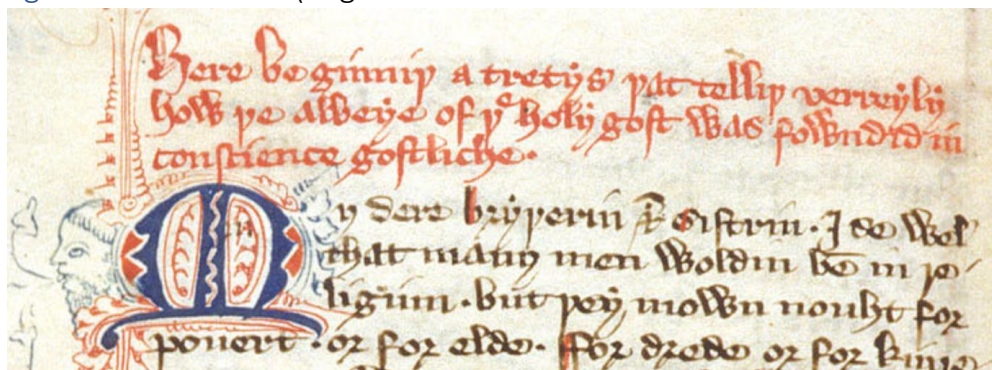 Here beginniþ a tretys þat telliþ verreyly
how þe abbeye of þe holy gost was fowndid in
conscience gostliche.
My dere bryþerin & sistrin. I se wel
that many men woldin be in re
ligiun. but þey mown nouht for
pouert. or for elde. for drede or for